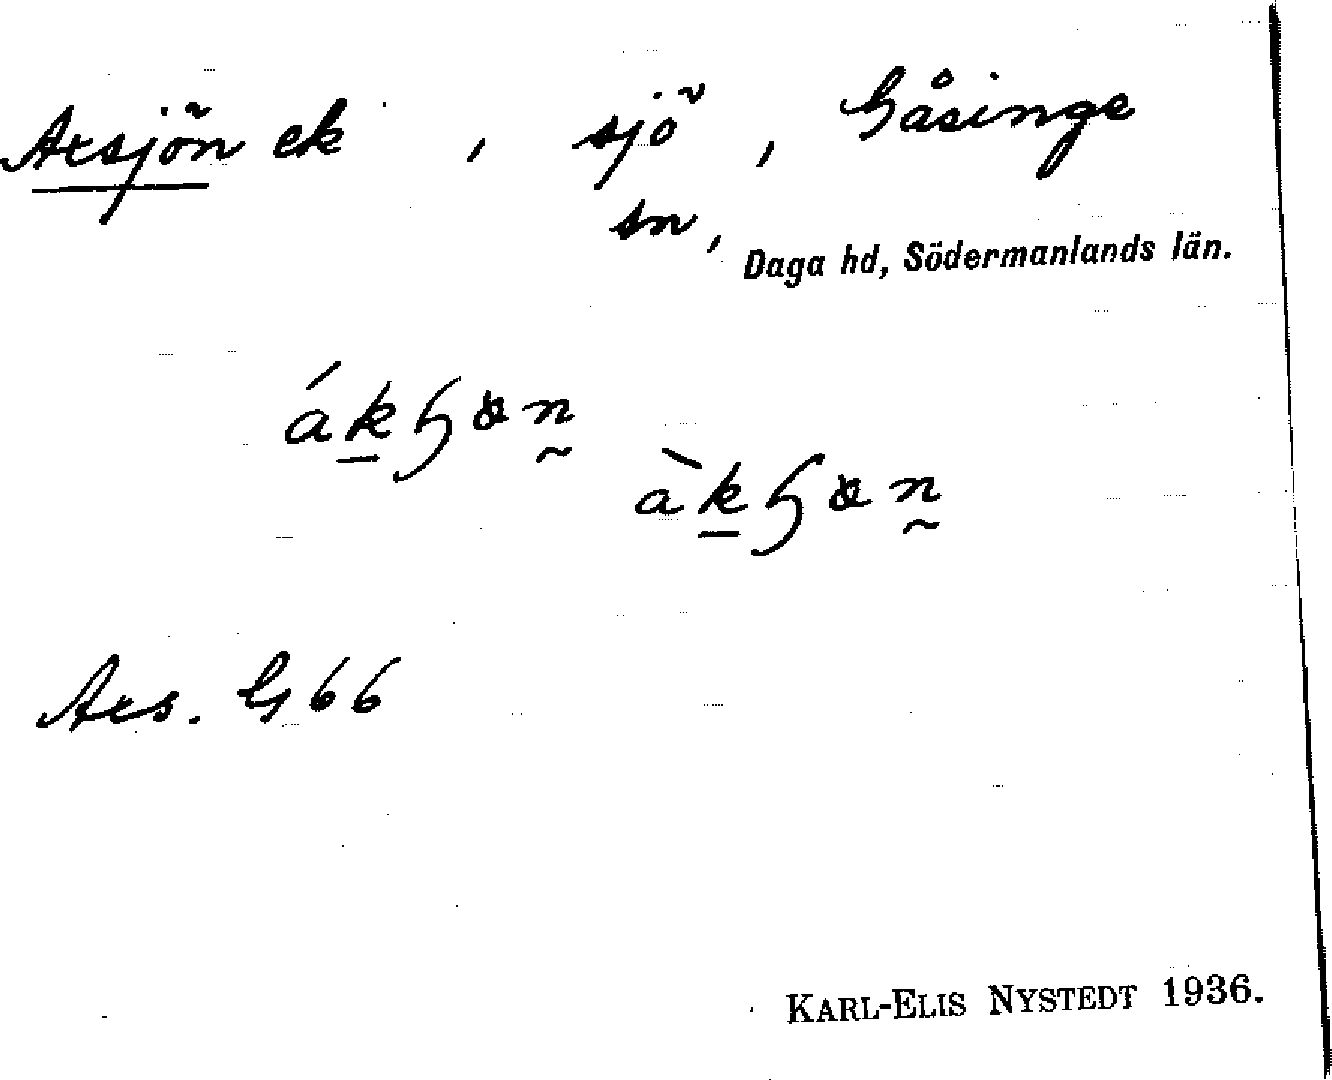 Axsjön ek , sjö , Gåsinge
sn ,
Daga hd, Södermanlands län.
Axs. G 66
KARL-ELIS NYSTEDT 1936.